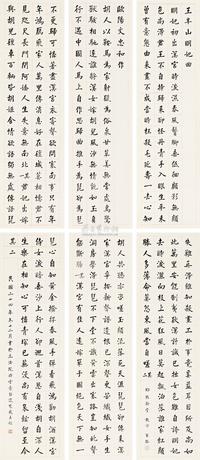 王半山明妃曲
明妃初出漢宮時淚濕春風鬢腳垂低回顧影無顏
色尚得君王不自持歸來卻怪丹青手入眼平生未
曾有意態由來畫不成當時枉殺毛延壽一去心知
不更歸可憐著盡漢宮衣寄聲欲問塞南事只有年
年鴻雁飛家人萬里傳消息好在氈城莫相憶君不
見咫尺長門閉阿嬌人生失意無南北明妃初嫁
與胡兒氈車百兩皆胡姬含情欲說獨無處傳與琵
琶心自知黃金捍撥春風手彈看飛鴻勸胡酒漢宮
侍女暗垂淚沙上行人卻回首漢恩自淺胡自深人
生樂在相知心可憐青塚已蕪沒尚有哀絃留至今
其二
民國二十四年
歐陽文忠和作
胡人以鞍馬為家射獵為俗泉甘草美無常處鳥驚
獸駭爭馳逐誰將漢女嫁胡兒風沙無情面如玉身
行不遇中國人馬上自作思歸曲推手為琵卻手琶
胡人共聽亦咨嗟玉顏流落死天涯琵琶卻傳來漢
家漢宮爭按新聲譜遺恨已深聲更苦纖纖女手生
洞房學得琵琶不下堂不識黃雲出塞路豈知此聲
能斷腸漢宮有佳人天子初未識一朝隨漢使遠嫁單于國絕色天下無一
失難再得雖能殺畫工於事竟何益耳目所及尚如
此萬里安能制夷狄漢計誠已拙女色難自誇明妃
去時淚灑向枝上花狂風日暮起飄泊落誰家紅顏
勝人多薄命莫怨東風當自嗟